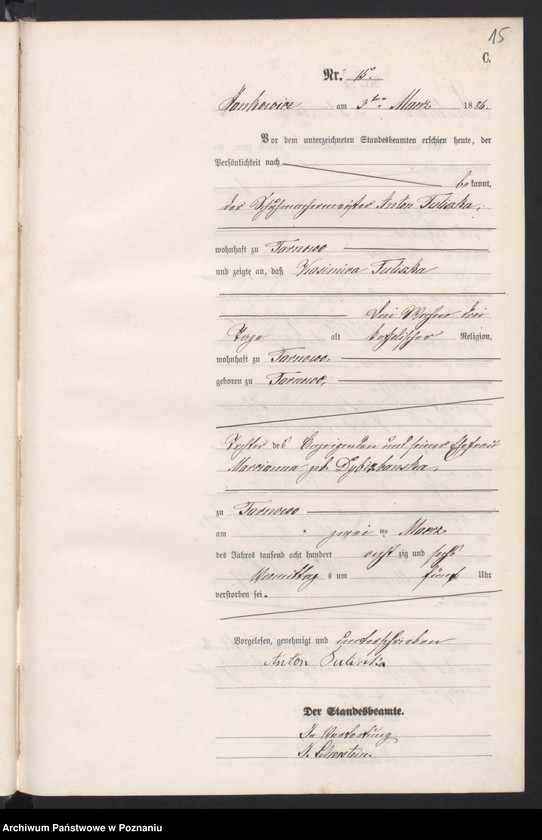 15
C.
Nr. 15.
am 3ten Maerz 1886.
Vor dem unterzeichneten Standesbeamten erschien heute, der
Persönlichkeit nach
bekannt,
der Schuhmachermeister Anton Tuliszka,
wohnhaft zu Tarnowo
und zeigte an, daß Kasimira Tuliszka
drei Wochen drei
Tage alt katholischer Religion,
wohnhaft zu Tarnowo,
geboren zu Tarnowo,
Tochter des Anzeigenden und seiner Ehefrau
Marcianna geb.
zu Tarnowo
am zwei ten Maerz
des Jahres tausend acht hundert acht zig und sechs
Vormittags um fünf Uhr
verstorben sei.
Vorgelesen, genehmigt und unterschrieben
Anton Tuliszka
Der Standesbeamte.
In Vertretung
Archiwum Państwowe w Poznaniu